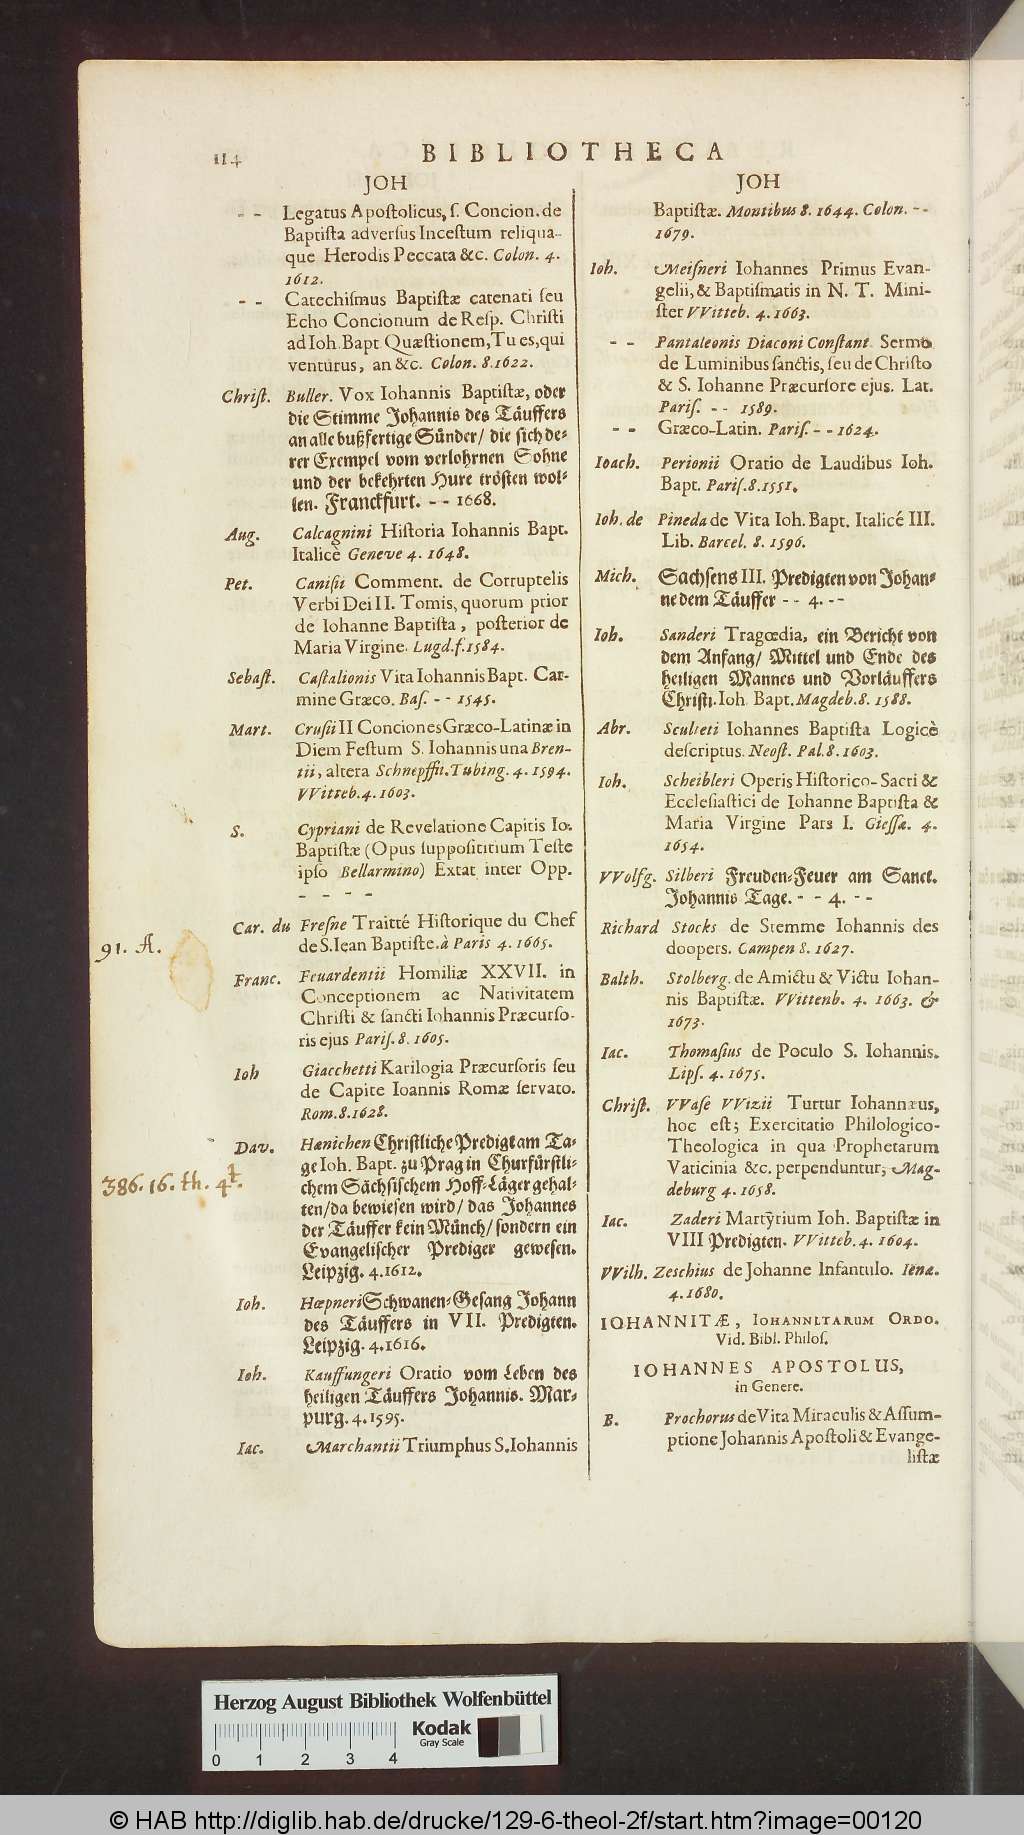 114
BIBLIOTHECA
JOH
- - Legatus Apostolicus, s. Concion. de
Baptista adversus Incestum reliqua-
que Herodis Peccata &c. Colon. 4.
1612.
- - Catechismus Baptistæ catenati seu
Echo Concionum de Resp. Christi
ad Ioh. Bapt. Quæstionem, Tu es, qui
venturus, an &c. Colon. 8. 1622.
Christ. Buller. Vox Iohannis Baptistæ, oder
die Stimme Johannis des Täuffers
an alle bußfertige Sünder/ die sich de-
rer Exempel vom verlohrnen Sohne
und der bekehrten Hure trösten wol-
len. Franckfurt. - - 1668.
Aug. Calcagnini Historia Iohannis Bapt.
Italicè Geneve 4. 1648.
Pet. Canisii Comment. de Corruptelis
Verbi Dei II. Tomis, quorum prior
de Iohanne Baptista, posterior de
Maria Virgine. Lugd. f. 1584.
Sebast. Castalionis Vita Iohannis Bapt. Car-
mine Græco. Bas. - - 1545.
Mart. Crusii II Conciones Græco-Latinæ in
Diem Festum S. Iohannis una Bren-
tii, altera Schnepffii. Tubing. 4. 1594.
VVitteb. 4. 1603.
S. Cypriani de Revelatione Capitis Io.
Baptistæ (Opus supposititium Teste
ipso Bellarmino) Extat inter Opp.
- - -
Car. du Fresne Traitté Historique du Chef
de S. Iean Baptiste. à Paris 4. 1665.
91. A.
Franc. Feuardentii Homiliæ XXVII. in
Conceptionem ac Nativitatem
Christi & sancti Iohannis Præcurso-
ris ejus Paris. 8. 1605.
Ioh Giacchetti Karilogia Præcursoris seu
de Capite Ioannis Romæ servato.
Rom. 8. 1628.
Dav. Hænichen Christliche Predigt am Ta-
ge Ioh. Bapt. zu Prag in Churfürstli-
chem Sächsischem Hoff-Läger gehal-
386. 16. th. 4t.
ten/ da bewiesen wird/ das Johannes
der Täuffer kein Münch/ sondern ein
Evangelischer Prediger gewesen.
Leipzig. 4. 1612.
Ioh. Hæpneri Schwanen-Gesang Johann
des Täuffers in VII. Predigten.
Leipzig. 4. 1616.
Ioh. Kauffungeri Oratio vom Leben des
heiligen Täuffers Johannis. Mar-
purg. 4. 1595.
Iac. Marchantii Triumphus S. Iohannis
JOH
Baptistæ. Montibus 8. 1644. Colon. - -
1679.
Ioh. Meisneri Iohannes Primus Evan-
gelii, & Baptismatis in N. T. Mini-
ster VVitteb. 4. 1663.
- - Pantaleonis Diaconi Constant. Sermo
de Luminibus sanctis, seu de Christo
& S. Iohanne Præcursore ejus. Lat.
Paris. - - 1589.
- - Græco-Latin. Paris. - - 1624.
Ioach. Perionii Oratio de Laudibus Ioh.
Bapt. Paris. 8. 1551.
Ioh. de Pineda de Vita Ioh. Bapt. Italicé III.
Lib. Barcel. 8. 1596.
Mich. Sachsens III. Predigten von Johan-
ne dem Täuffer - - 4. - -
Ioh. Sanderi Tragœdia, ein Bericht von
dem Anfang/ Mittel und Ende des
heiligen Mannes und Vorläuffers
Christi. Ioh. Bapt. Magdeb. 8. 1588.
Abr. Sculteti Iohannes Baptista Logicè
descriptus. Neost. Pal. 8. 1603.
Ioh. Scheibleri Operis Historico-Sacri &
Ecclesiastici de Iohanne Baptista &
Maria Virgine Pars I. Giessæ. 4.
1654.
VVolfg. Silberi Freuden-Feuer am Sanct.
Johannis Tage. - - 4. - -
Richard Stocks de Stemme Iohannis des
doopers. Campen 8. 1627.
Balth. Stolberg. de Amictu & Victu Iohan-
nis Baptistæ. VVittenb. 4. 1663. &
1673.
Iac. Thomasius de Poculo S. Iohannis.
Lips. 4. 1675.
Christ. VVase VVizii Turtur Iohannæus,
hoc est; Exercitatio Philologico-
Theologica in qua Prophetarum
Vaticinia &c. perpenduntur; Mag-
deburg 4. 1658.
Iac. Zaderi Martyrium Ioh. Baptistæ in
VIII Predigten. VVitteb. 4. 1604.
VVilh. Zeschius de Johanne Infantulo. Ienæ.
4. 1680.
IOHANNITÆ, IOHANNITARUM ORDO.
Vid. Bibl. Philos.
IOHANNES APOSTOLUS,
in Genere.
B. Prochorus de Vita Miraculis & Assum-
ptione Johannis Apostoli & Evange-
listæ
Herzog August Bibliothek Wolfenbüttel
0 1 2 3 4
Kodak
Gray Scale
© HAB http://diglib.hab.de/drucke/129-6-theol-2f/start.htm?image=00120